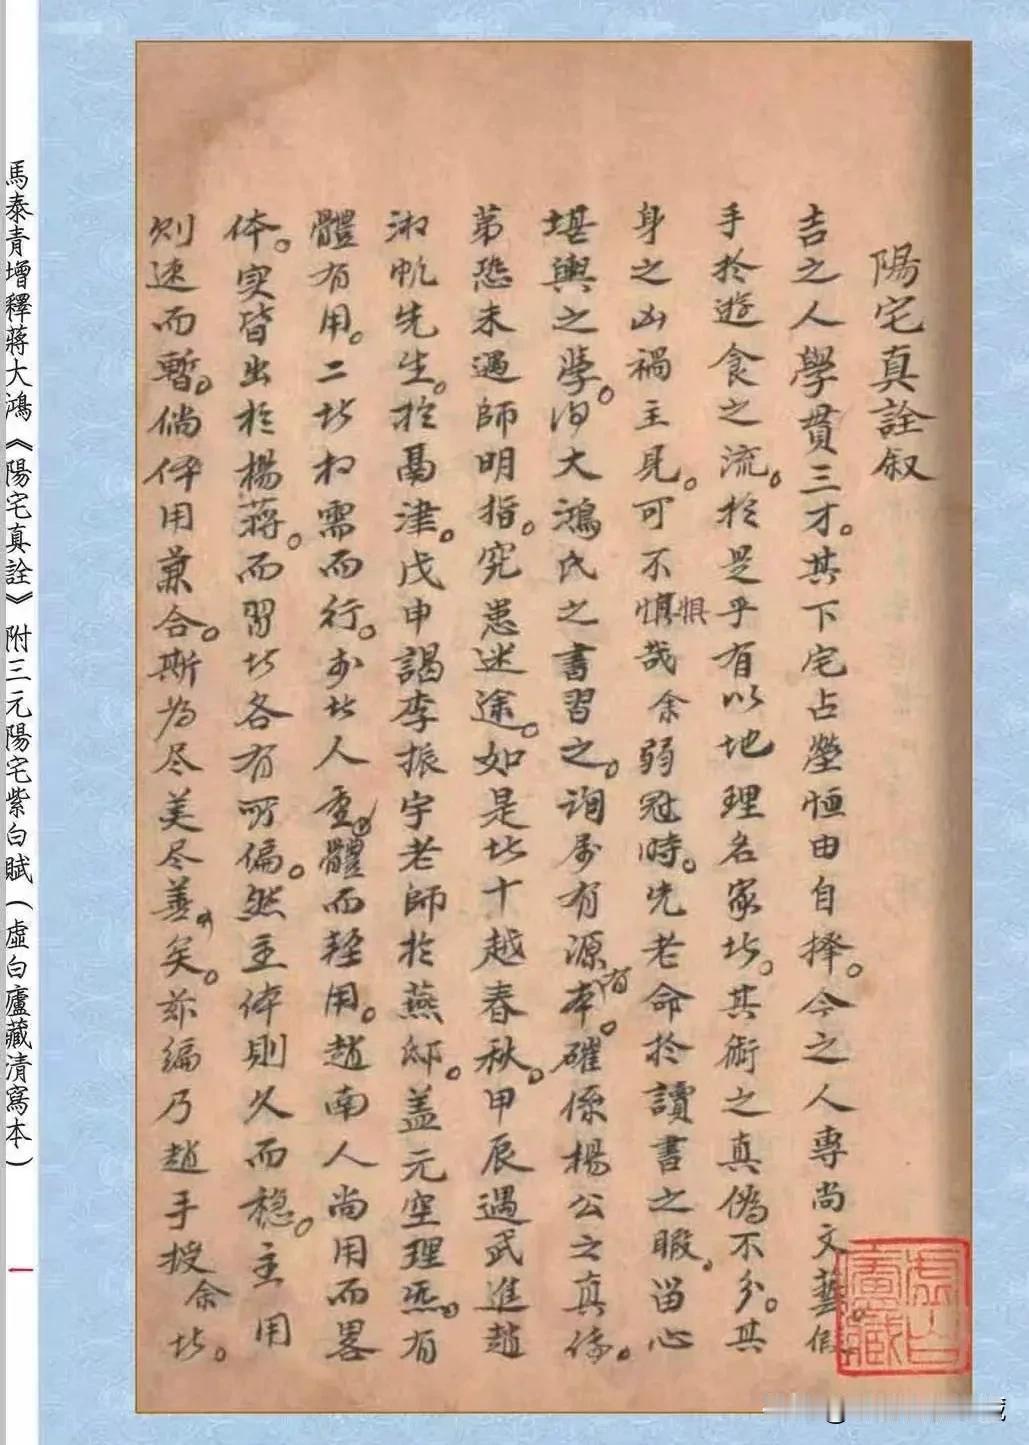 陽宅真詮叙
吉之人學貫三才。其下宅占塋恒由自择。今之人專尚文藝。假
手於遊食之流。於是乎有以地理名家者。其術之真偽不分。其
身之凶禍立見。可不慎惧哉余弱冠時。先老命於讀書之暇。留心
堪輿之學。得大鴻氏之書習之。詢屬有源有本。確係楊公之真傳。
第恐未遇師明指。究患迷途。如是者十越春秋。甲辰遇武進趙
淑帆先生。於鬲津。戊申謁李振宇老師於燕邸。盖元空理炁。有
體有用。二者相需而行。李北人重體而輕用。趙南人尚用而畧
体。实皆出於楊蔣。而習者各有所偏。然主体則久而穏。主用
则速而暫。倘体用兼合。斯为尽美尽善矣。兹编乃趙手授余者。
虛白廬藏
馬泰青增釋蔣大鴻《陽宅真詮》附三元陽宅紫白賦（虛白廬藏清寫本）
一